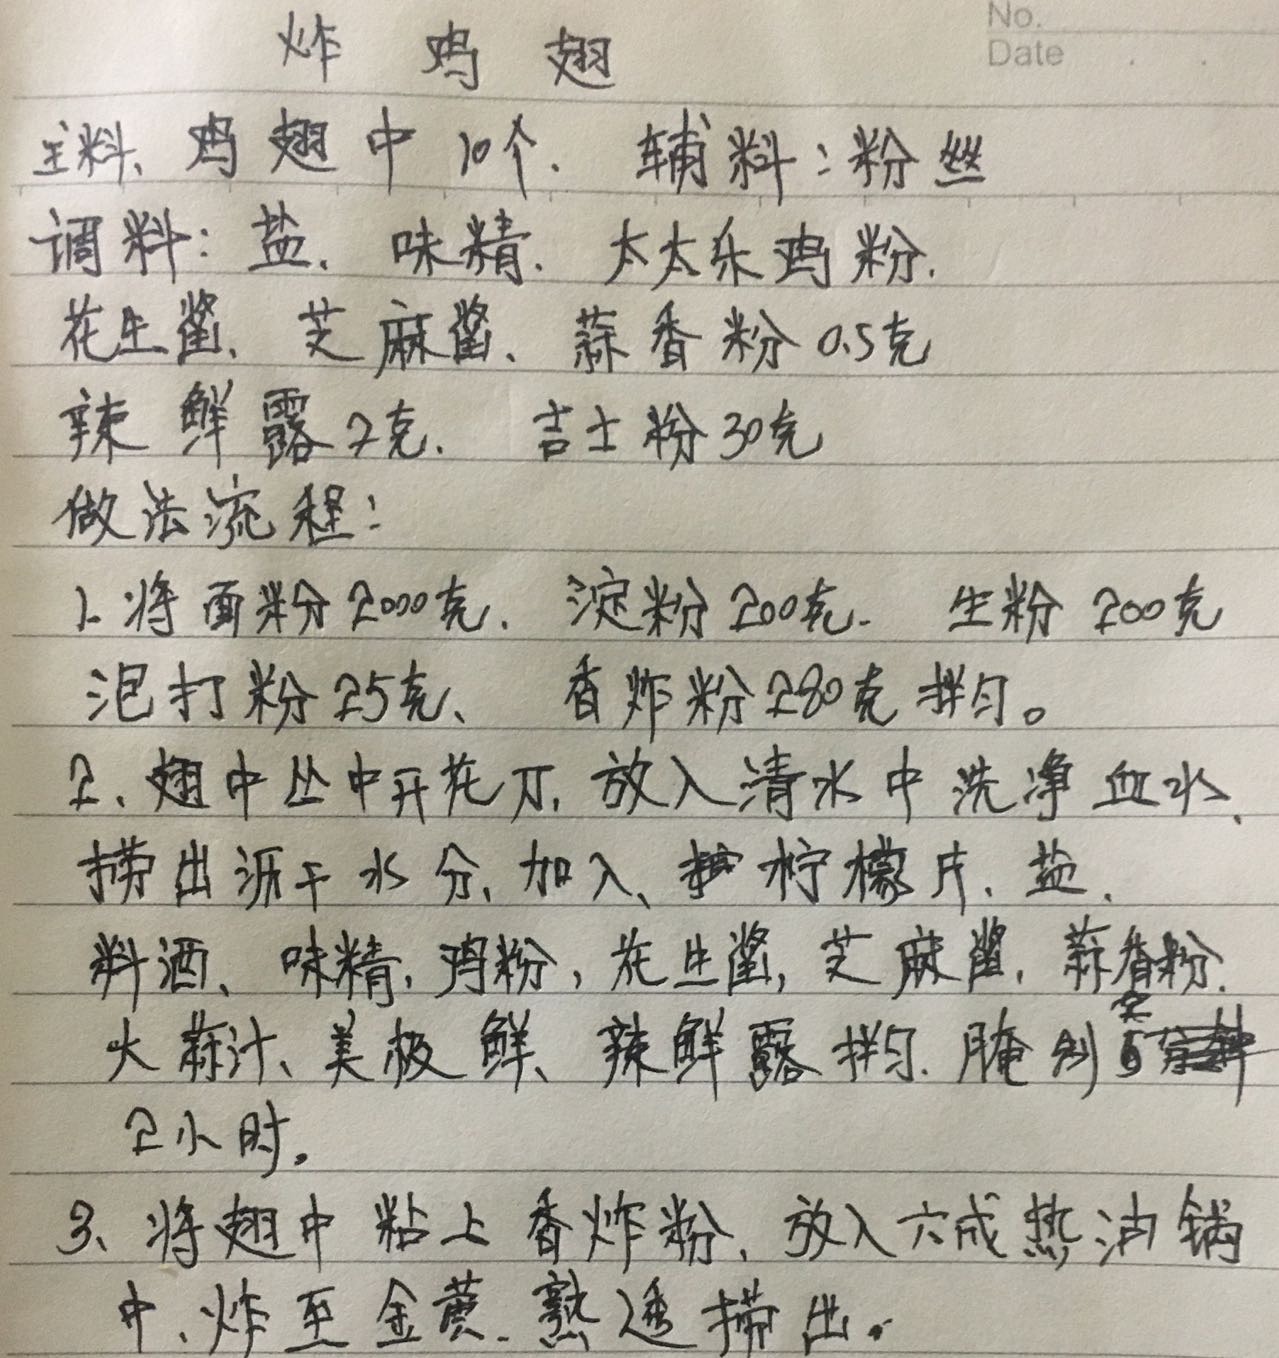 No.
Date
炸鸡翅
主料、鸡翅中10个. 辅料:粉丝
调料:盐. 味精. 太太乐鸡粉.
花生酱、芝麻酱、蒜香粉0.5克
辣鲜露2克. 吉士粉30克
做法流程:
1. 将面粉2000克. 淀粉200克. 生粉200克
泡打粉25克、 香炸粉280克拌匀。
2、翅中从中开花刀, 放入清水中洗净血水、
捞出沥干水分, 加入、柠檬片、盐、
料酒、味精, 鸡粉, 花生酱, 芝麻酱, 蒜香粉.
大蒜汁、美极鲜、辣鲜露拌匀. 腌制
2小时。
3、将翅中粘上香炸粉、放入六成热油锅
中、炸至金黄、熟透捞出。